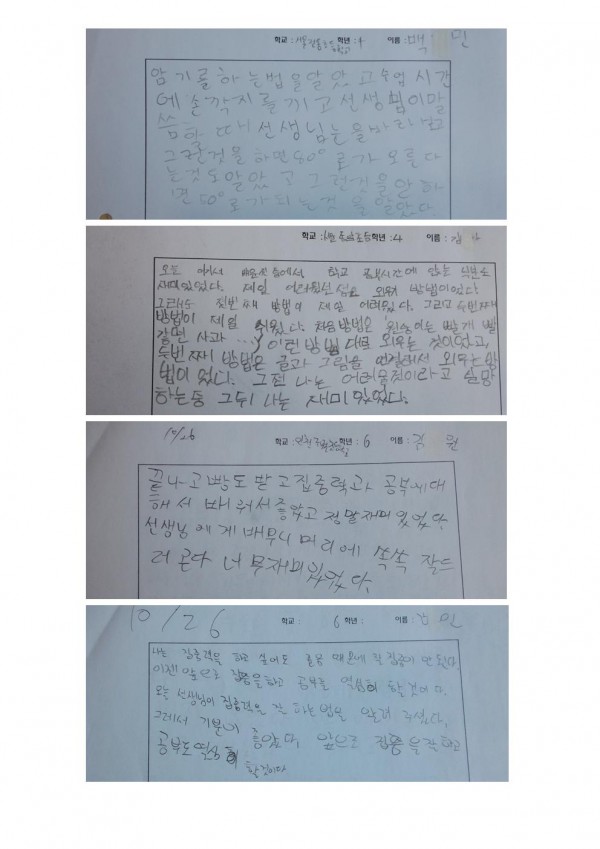 학교 : 학년 : 4 이름 : 백 민
암기를 하는법을알았고수업시간
에 손깍지를 끼고선생님이말
씀할 때선생님는을바라보고
그런것을 하면 80°로가 오른다
는것도알았고 그런것을안하
면 50°로가되는것을알았다
학교 : 학년 : 4 이름 : 김
오늘 여기서 배운것 중에서 학교 시간에 있는
재미있었다. 제일 어려웠던 점은 외워 방법이었다
그래서 첫번째 방법이 제일 어려웠다. 그리고 두번째
방법이 제일 쉬웠다. 처음방법은 '원숭이는 빨개 빨
갈면 사과 ...' 이런 방법대로 외우는 것이었고,
두번째 방법은 글과 그림을 연결해서 외우는방
법이었다. 그런 나는 어려운것이라고 실망
하는둥 그뒤 나는 재미있었다.
10/26
학교 : 인천 학년 : 6 이름 : 김 원
끝나고빵도받고집중력과 공부에대
해서 배워서좋았고 정말재미있었다
선생님에게배우니머리에 쏙쏙 잘드
러온다 너무재미있었다.
10/26
학교 : 6 학년 : 이름 : 김 민
나는 집중력을 하고 싶어도 때문에 잘 집중이 안 된다
이젠 앞으로 집중을하고 공부를 열심히 할것이다.
오늘 선생님이 집중력을 잘 하는법을 알려 주셨다.
그래서 기분이 좋았다. 앞으로 집중을잘하고
공부도열심히
할것이다